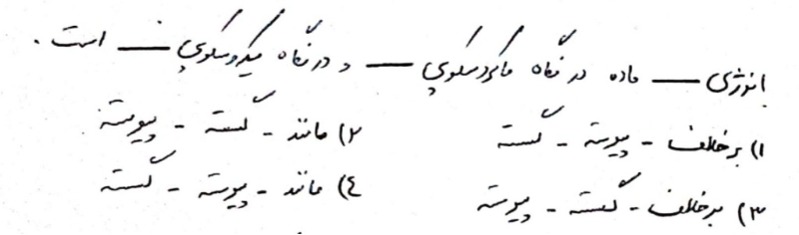 انرژی ــــ ماده در نگاه ماکروسکوپی ــــ و در نگاه میکروسکوپی ــــ است .
۱) برخلاف - پیوسته - گسسته ۲) مانند - گسسته - پیوسته
۳) برخلاف - گسسته - پیوسته ۴) مانند - پیوسته - گسسته